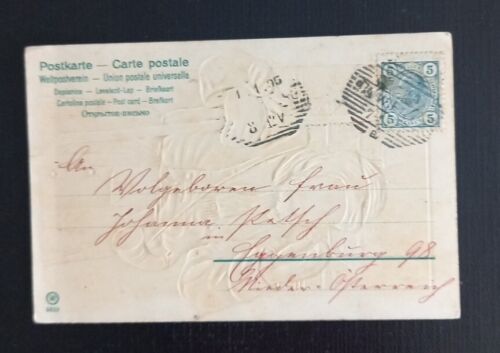 Postkarte — Carte postale
Weltpostverein — Union postale universelle
Dopisnice — Levelező-Lap — Briefkaart
Cartolina postale — Post card — Brefkort
Открытое письмо
5 5
5 5
An
Wolgeboren Frau
Johanna Petsch
in
Eggenburg 98
Nieder-Österreich